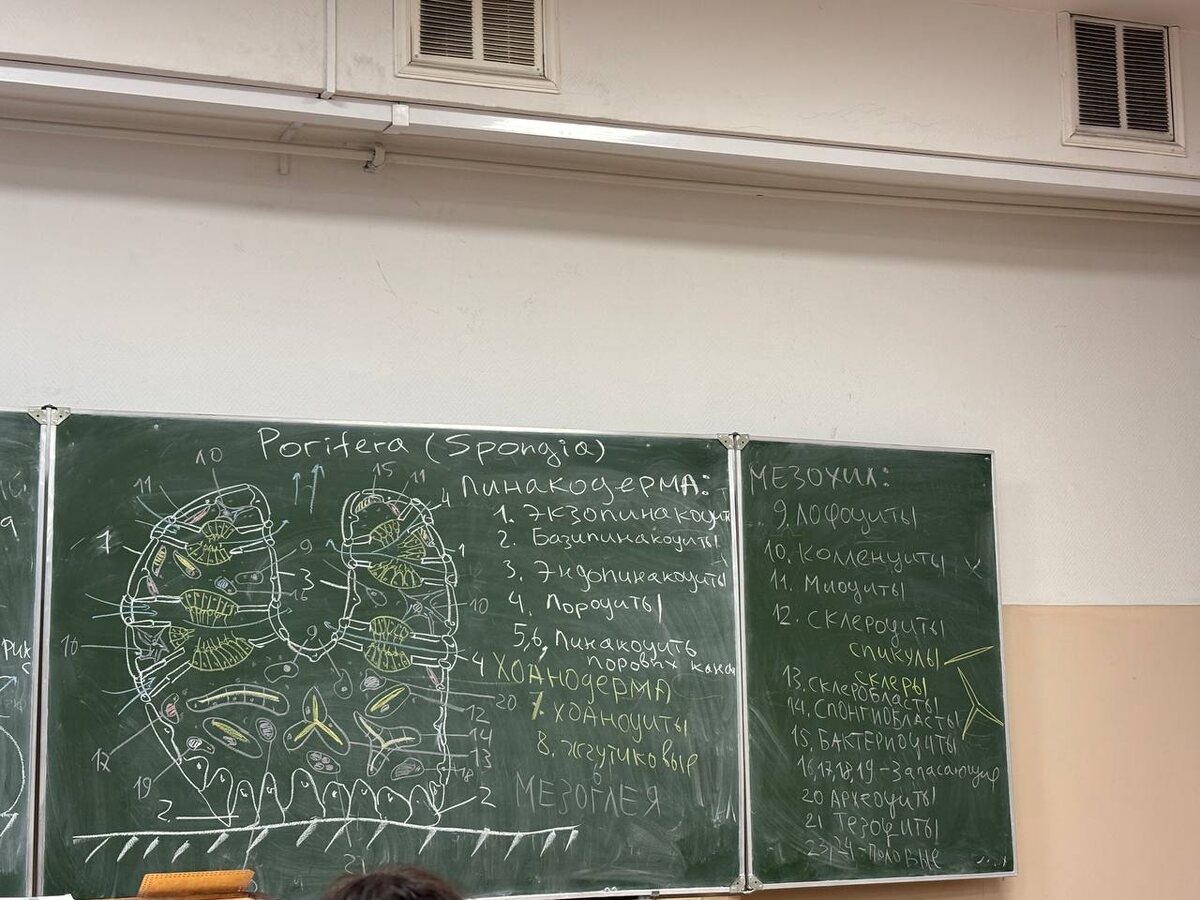 Porifera (Spongia)
Пинакодерма:
1. Экзопинакоциты
2. Базипинакоциты
3. Эндопинакоциты
4. Пороциты
5,6, Пинакоциты
поровых кана
Хоанодерма
7. Хоаноциты
8. Жгутиковые
Мезоглея
10
15
11
11
4
1
1
9
3
16
10
9
10
4
20
12
14
13
18
12
19
2
2
21
МЕЗОХИЛ:
9. Лофоциты
10. Колленциты
11. Миоциты
12. Склероциты
спикулы
склеры
13. Склеробласты
14. Спонгиобласты
15, Бактериоциты
16,17,18,19 - Запасающие
20 Археоциты
21 Тезоциты
23,24 - Половые